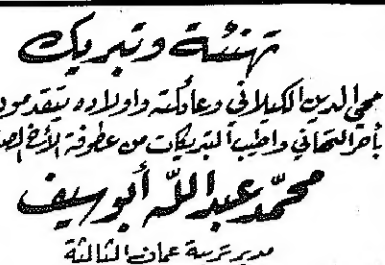 تهنئة وتبريك
محي الدين الكيلاني وعائلته وأولاده يتقدمون
بأحر التهاني وأطيب التبريكات من عطوفة الأخ الصد
محمد عبد الله أبو سيف
مدير تربية عمان الثالثة